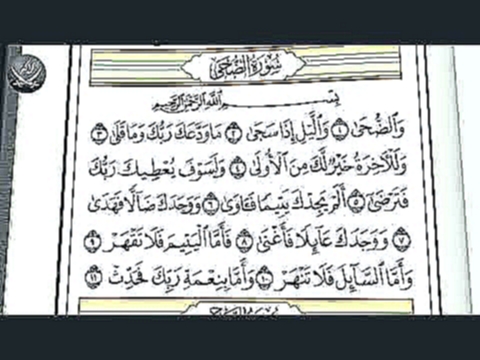 سُورَةُ الضُّحَىٰ
بِسْمِ اللَّهِ الرَّحْمَٰنِ الرَّحِيمِ
وَالضُّحَىٰ ١ وَالَّيْلِ إِذَا سَجَىٰ ٢ مَا وَدَّعَكَ رَبُّكَ وَمَا قَلَىٰ ٣
وَلَلْآخِرَةُ خَيْرٌ لَّكَ مِنَ الْأُولَىٰ ٤ وَلَسَوْفَ يُعْطِيكَ رَبُّكَ
فَتَرْضَىٰ ٥ أَلَمْ يَجِدْكَ يَتِيمًا فَآوَىٰ ٦ وَوَجَدَكَ ضَالًّا فَهَدَىٰ
٧ وَوَجَدَكَ عَائِلًا فَأَغْنَىٰ ٨ فَأَمَّا الْيَتِيمَ فَلَا تَقْهَرْ ٩
وَأَمَّا السَّائِلَ فَلَا تَنْهَرْ ١٠ وَأَمَّا بِنِعْمَةِ رَبِّكَ فَحَدِّثْ ١١